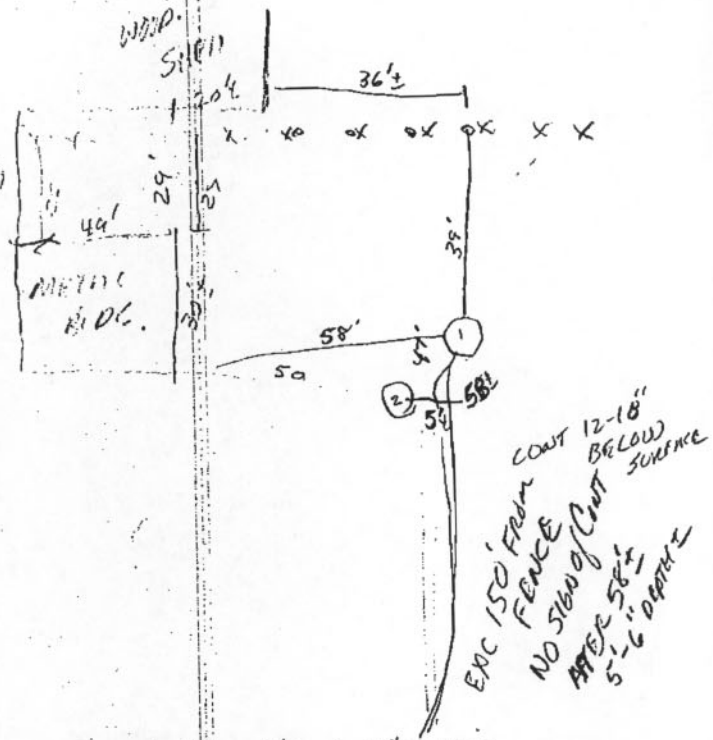 WOOD.
SHED
36'±
x xo ox ox ox x x
29'
25
39'
49'
METAL
BLDG.
30'
58'
47'
1
50
2
58±
5'±
CONT 12-18"
BELOW
SURFACE
EXC 150' FROM
FENCE
NO SIGN of CONT
AFTER 58'±
5'-6" DEPTH±